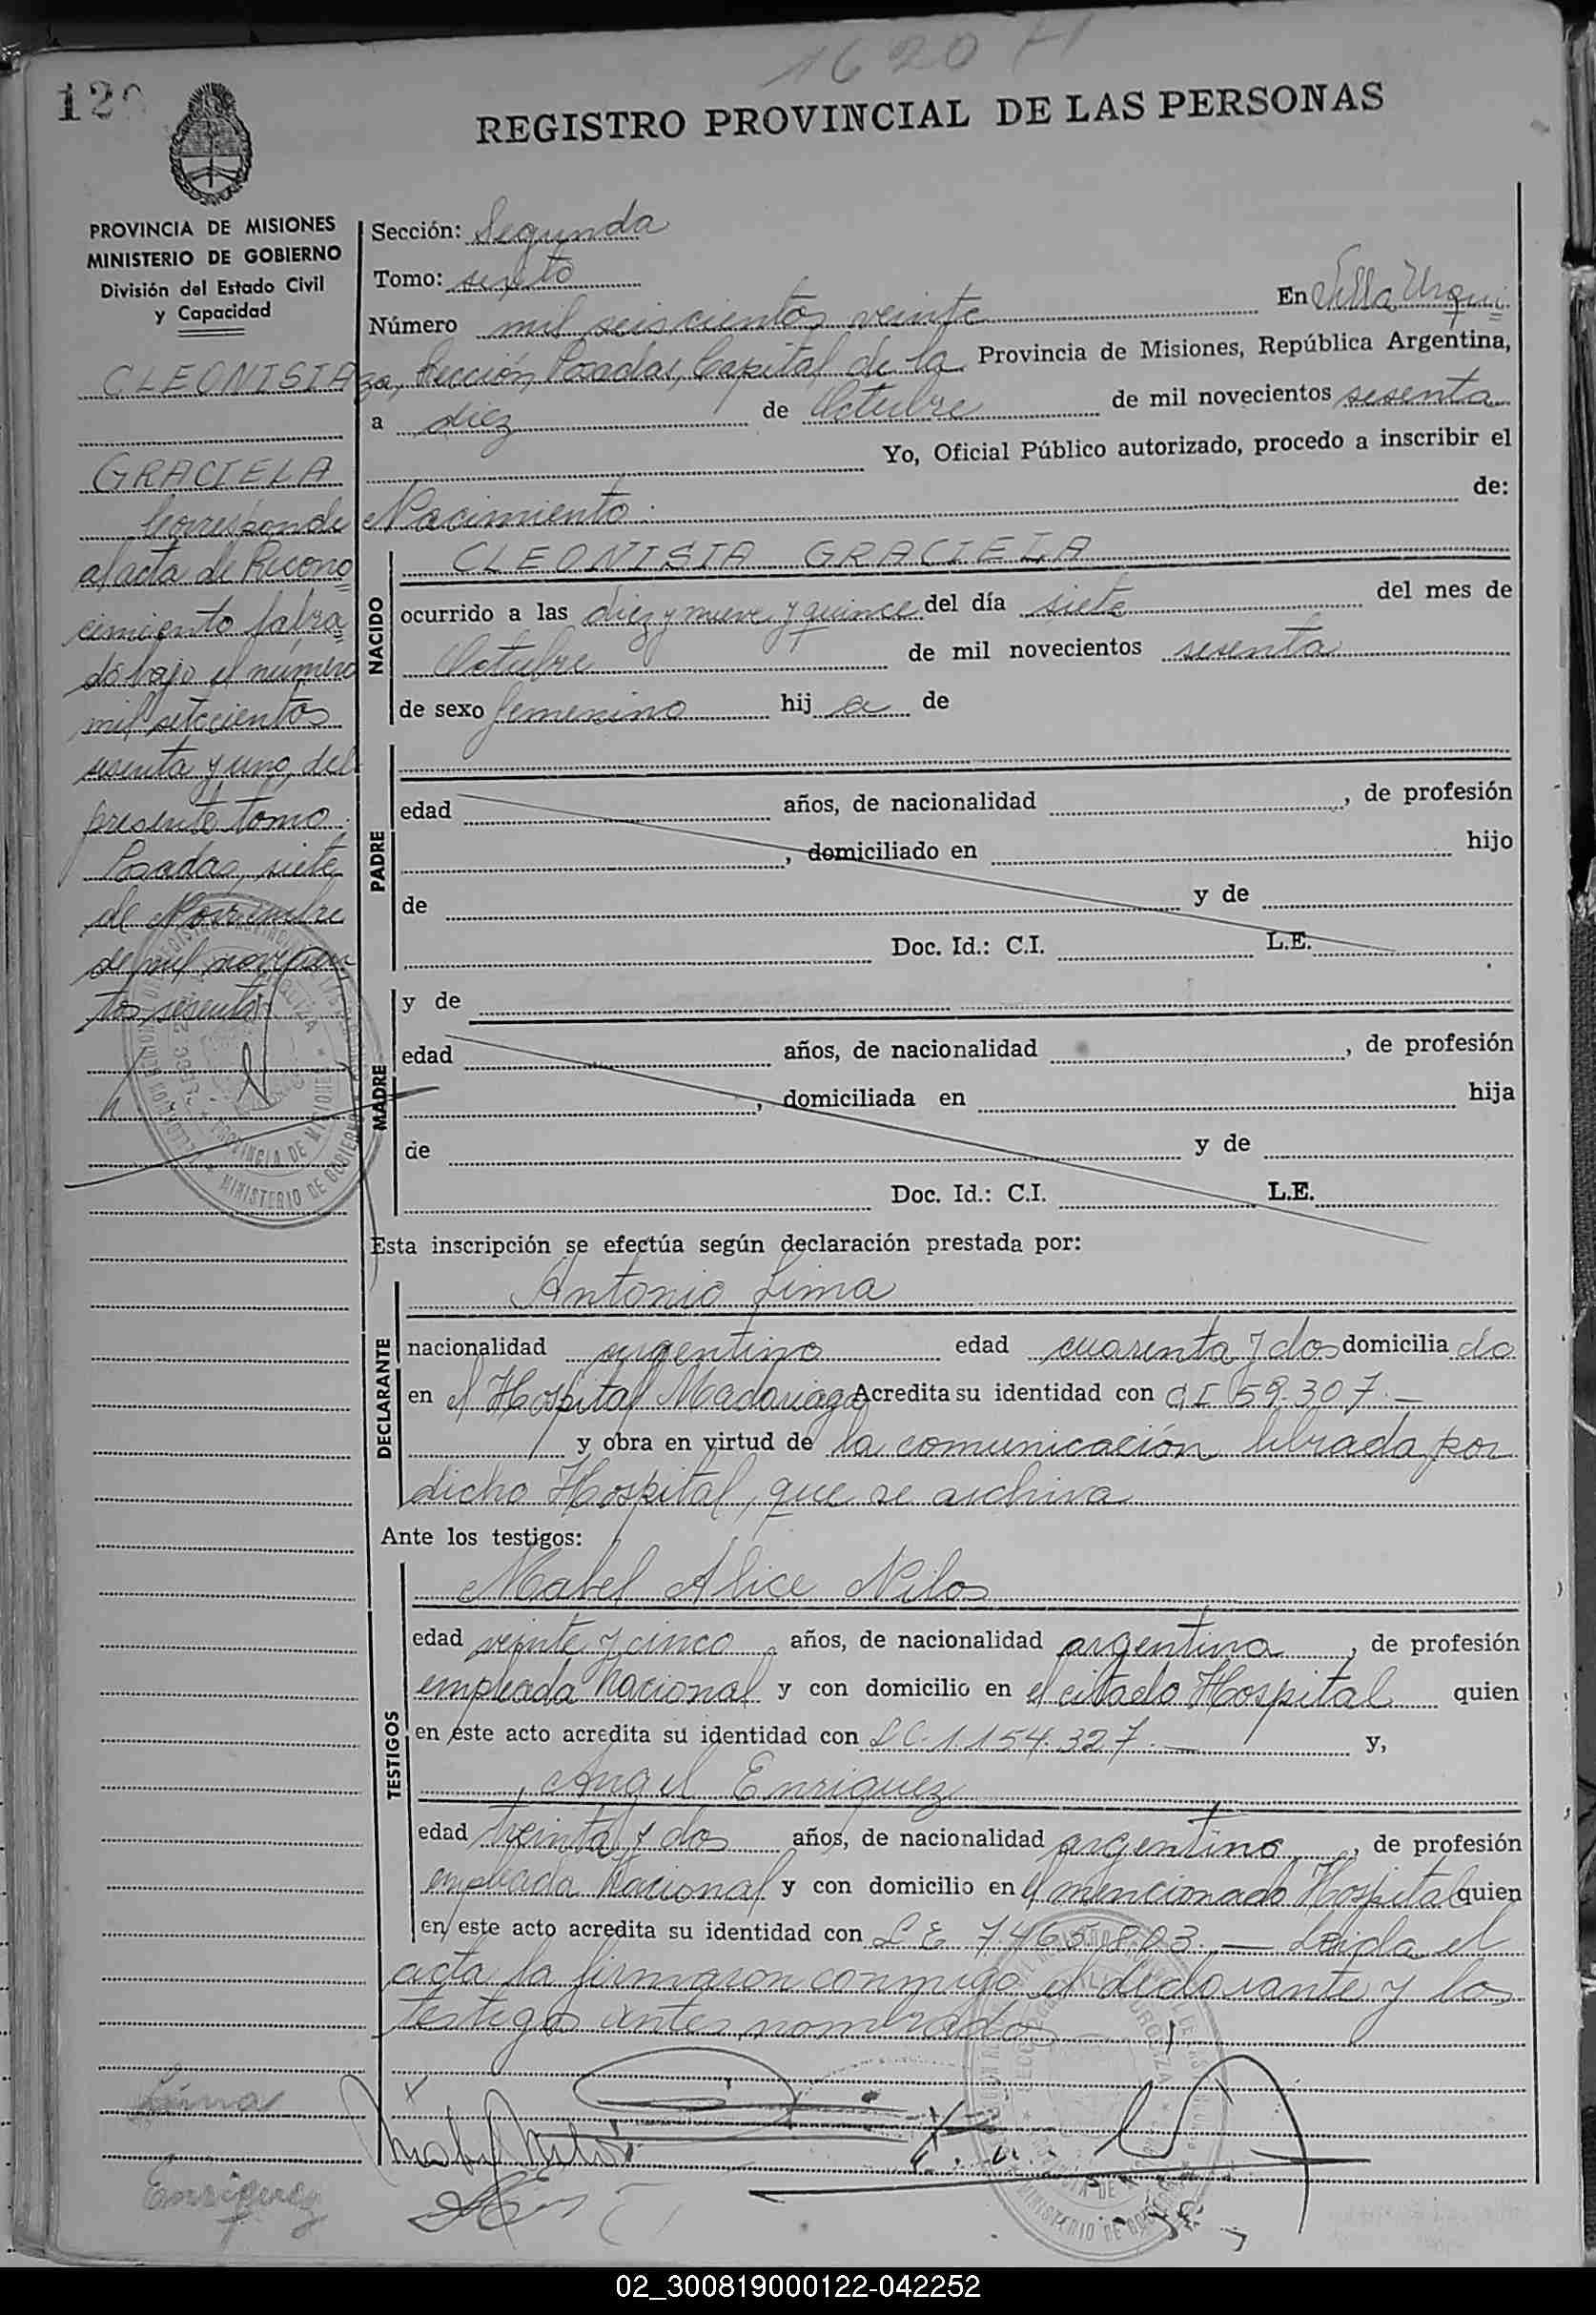 1620
120
REGISTRO PROVINCIAL DE LAS PERSONAS
PROVINCIA DE MISIONES
MINISTERIO DE GOBIERNO
División del Estado Civil
y Capacidad
CLEONISIA
GRACIELA
Corresponde
al acta de Recono
cimiento labra
do bajo el número
mil setecientos
sesenta y uno, del
presente tomo.
Posadas, siete
de Noviembre
de mil novecien
tos sesenta
Sección: Segunda
Tomo: sexto
Número mil seiscientos veinte En Villa Urqui
za, Sección Posadas, Capital de la Provincia de Misiones, República Argentina,
a diez de Octubre de mil novecientos sesenta
Yo, Oficial Público autorizado, procedo a inscribir el
Nacimiento de:
NACIDO
CLEONISIA GRACIELA
ocurrido a las diez y nueve y quince del día siete del mes de
Octubre de mil novecientos sesenta
de sexo femenino hij a de
PADRE
edad años, de nacionalidad , de profesión
, domiciliado en hijo
de y de
Doc. Id.: C.I. L.E.
MADRE
y de
edad años, de nacionalidad , de profesión
, domiciliada en hija
de y de
Doc. Id.: C.I. L.E.
Esta inscripción se efectúa según declaración prestada por:
DECLARANTE
Antonio Lima
nacionalidad argentino edad cuarenta y dos domicilia do
en el Hospital Madariaga Acredita su identidad con CI 59.307.—
y obra en virtud de la comunicación librada por
dicho Hospital, que se archiva
Ante los testigos:
TESTIGOS
Mabel Alice Nilos
edad veinte y cinco años, de nacionalidad argentina, de profesión
empleada Nacional y con domicilio en el citado Hospital quien
en este acto acredita su identidad con LC. 1.154.327.— y,
Angel Enriquez
edad treinta y dos años, de nacionalidad argentino, de profesión
empleada Nacional y con domicilio en el mencionado Hospital quien
en este acto acredita su identidad con LE 7.465.803.— Leida el
acta la firmaron conmigo el declarante y los
testigos antes nombrados
Lima
Enriquez
MINISTERIO DE GOBIERNO
PROVINCIA DE MISIONES
02_300819000122-042252